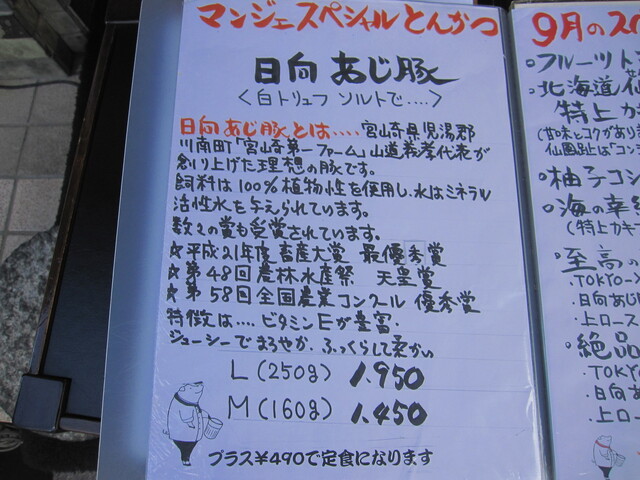 マンジェスペシャルとんかつ
日向あじ豚
〈白トリュフ ソルトで....〉
日向あじ豚とは....宮崎県児湯郡
川南町「宮崎第一ファーム」山道義孝代表が
創り上げた理想の豚です。
飼料は100%植物性を使用し、水はミネラル
活性水を与えられています。
数々の賞も受賞されています。
☆平成21年度畜産大賞 最優秀賞
☆第48回農林水産祭 天皇賞
☆第58回全国農業コンクール 優秀賞
特徴は....ビタミンEが豊富.
ジューシーでまろやか、ふっくらして柔かい
L(250g) 1,950
M(160g) 1,450
プラス¥490で定食になります
9月のス
・フルーツト
・北海道仙
特上カ
(甘味とコクがあり
仙鳳趾は「コン
・柚子コシ
・海の幸
(特上カキフ
・至高の
.TOKYO
.日向あじ
.上ロース
・絶品
.TOKYO
.日向あ
.上ロー